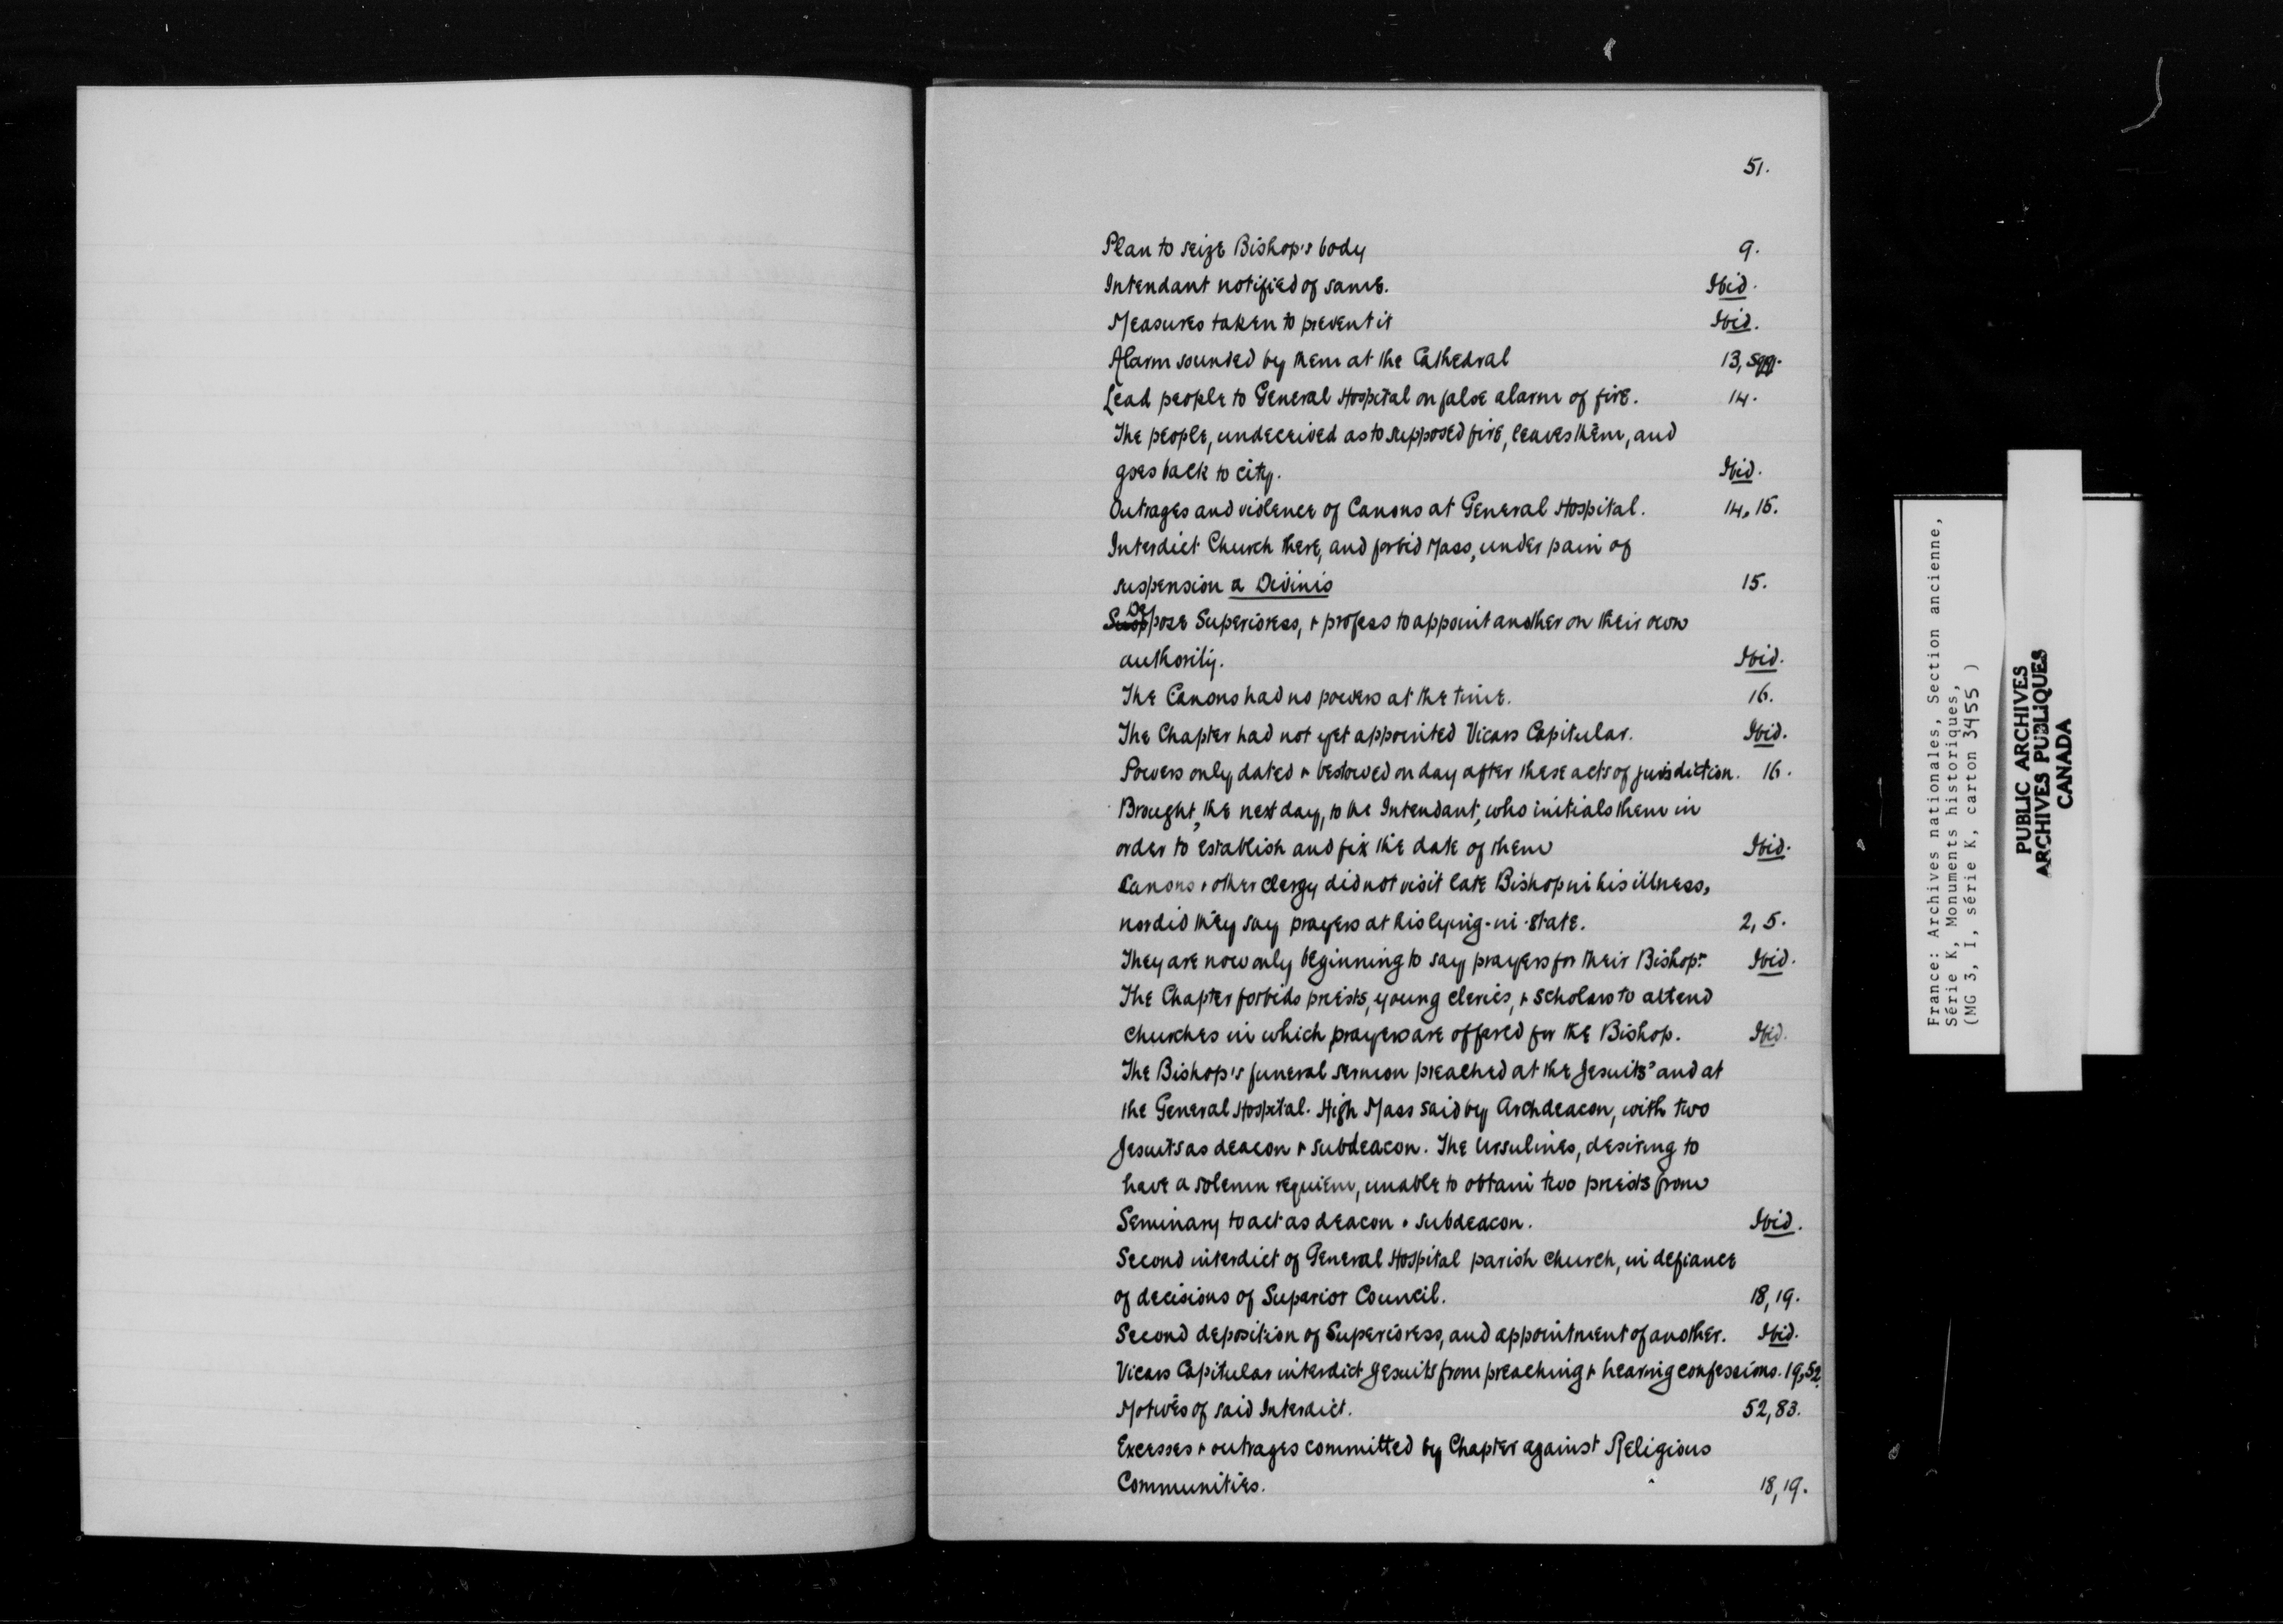 51.
Plan to seize Bishop's body 9.
Intendant notified of same. Ibid.
Measures taken to prevent it Ibid.
Alarm sounded by them at the Cathedral 13, sqq.
Lead people to General Hospital on false alarm of fire. 14.
The people, undeceived as to supposed fire, leaves them, and
goes back to city. Ibid.
Outrages and violence of Canons at General Hospital. 14, 15.
Interdict Church there, and forbid Mass, under pain of
suspension a Divinis 15.
Depose Superioress, & profess to appoint another on their own
authority. Ibid.
The Canons had no powers at the time. 16.
The Chapter had not yet appointed Vicars Capitular. Ibid.
Powers only dated & bestowed on day after these acts of jurisdiction. 16.
Brought, the next day, to the Intendant, who initials them in
order to establish and fix the date of them Ibid.
Canons & other clergy did not visit late Bishop in his illness,
nor did they say prayers at his lying-in-state. 2, 5.
They are now only beginning to say prayers for their Bishop. Ibid.
The Chapter forbids priests, young clerics, & scholars to attend
churches in which prayers are offered for the Bishop. Ibid.
The Bishop's funeral sermon preached at the Jesuits' and at
the General Hospital. High Mass said by Archdeacon, with two
Jesuits as deacon & subdeacon. The Ursulines, desiring to
have a solemn requiem, unable to obtain two priests from
Seminary to act as deacon & subdeacon. Ibid.
Second interdict of General Hospital parish church, in defiance
of decisions of Superior Council. 18, 19.
Second deposition of Superioress, and appointment of another. Ibid.
Vicars Capitular interdict Jesuits from preaching & hearing confessions. 19, 52.
Motives of said Interdict. 52, 83.
Excesses & outrages committed by Chapter against Religious
Communities. 18, 19.
France: Archives nationales, Section ancienne,
Série K, Monuments historiques,
(MG 3, I, série K, carton 3455 )
PUBLIC ARCHIVES
ARCHIVES PUBLIQUES
CANADA